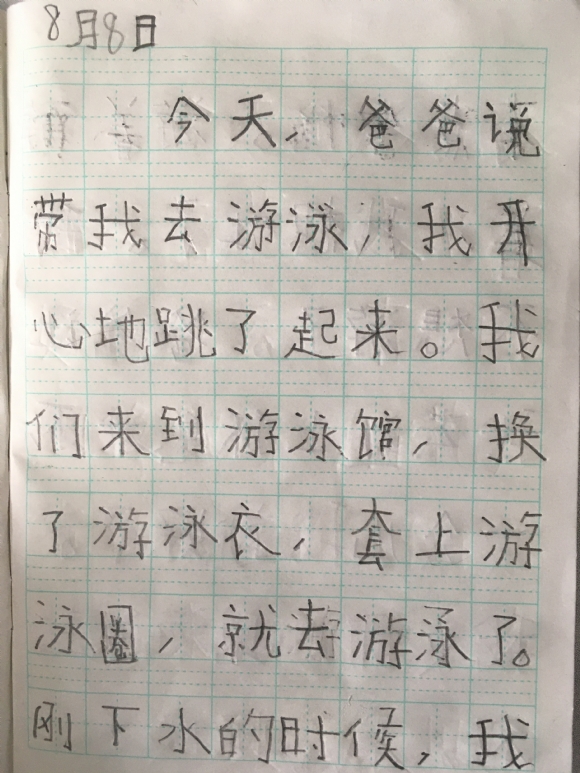 8月8日
今天，爸爸说
带我去游泳，我开
心地跳了起来。我
们来到游泳馆，换
了游泳衣，套上游
泳圈，就去游泳了。
刚下水的时候，我